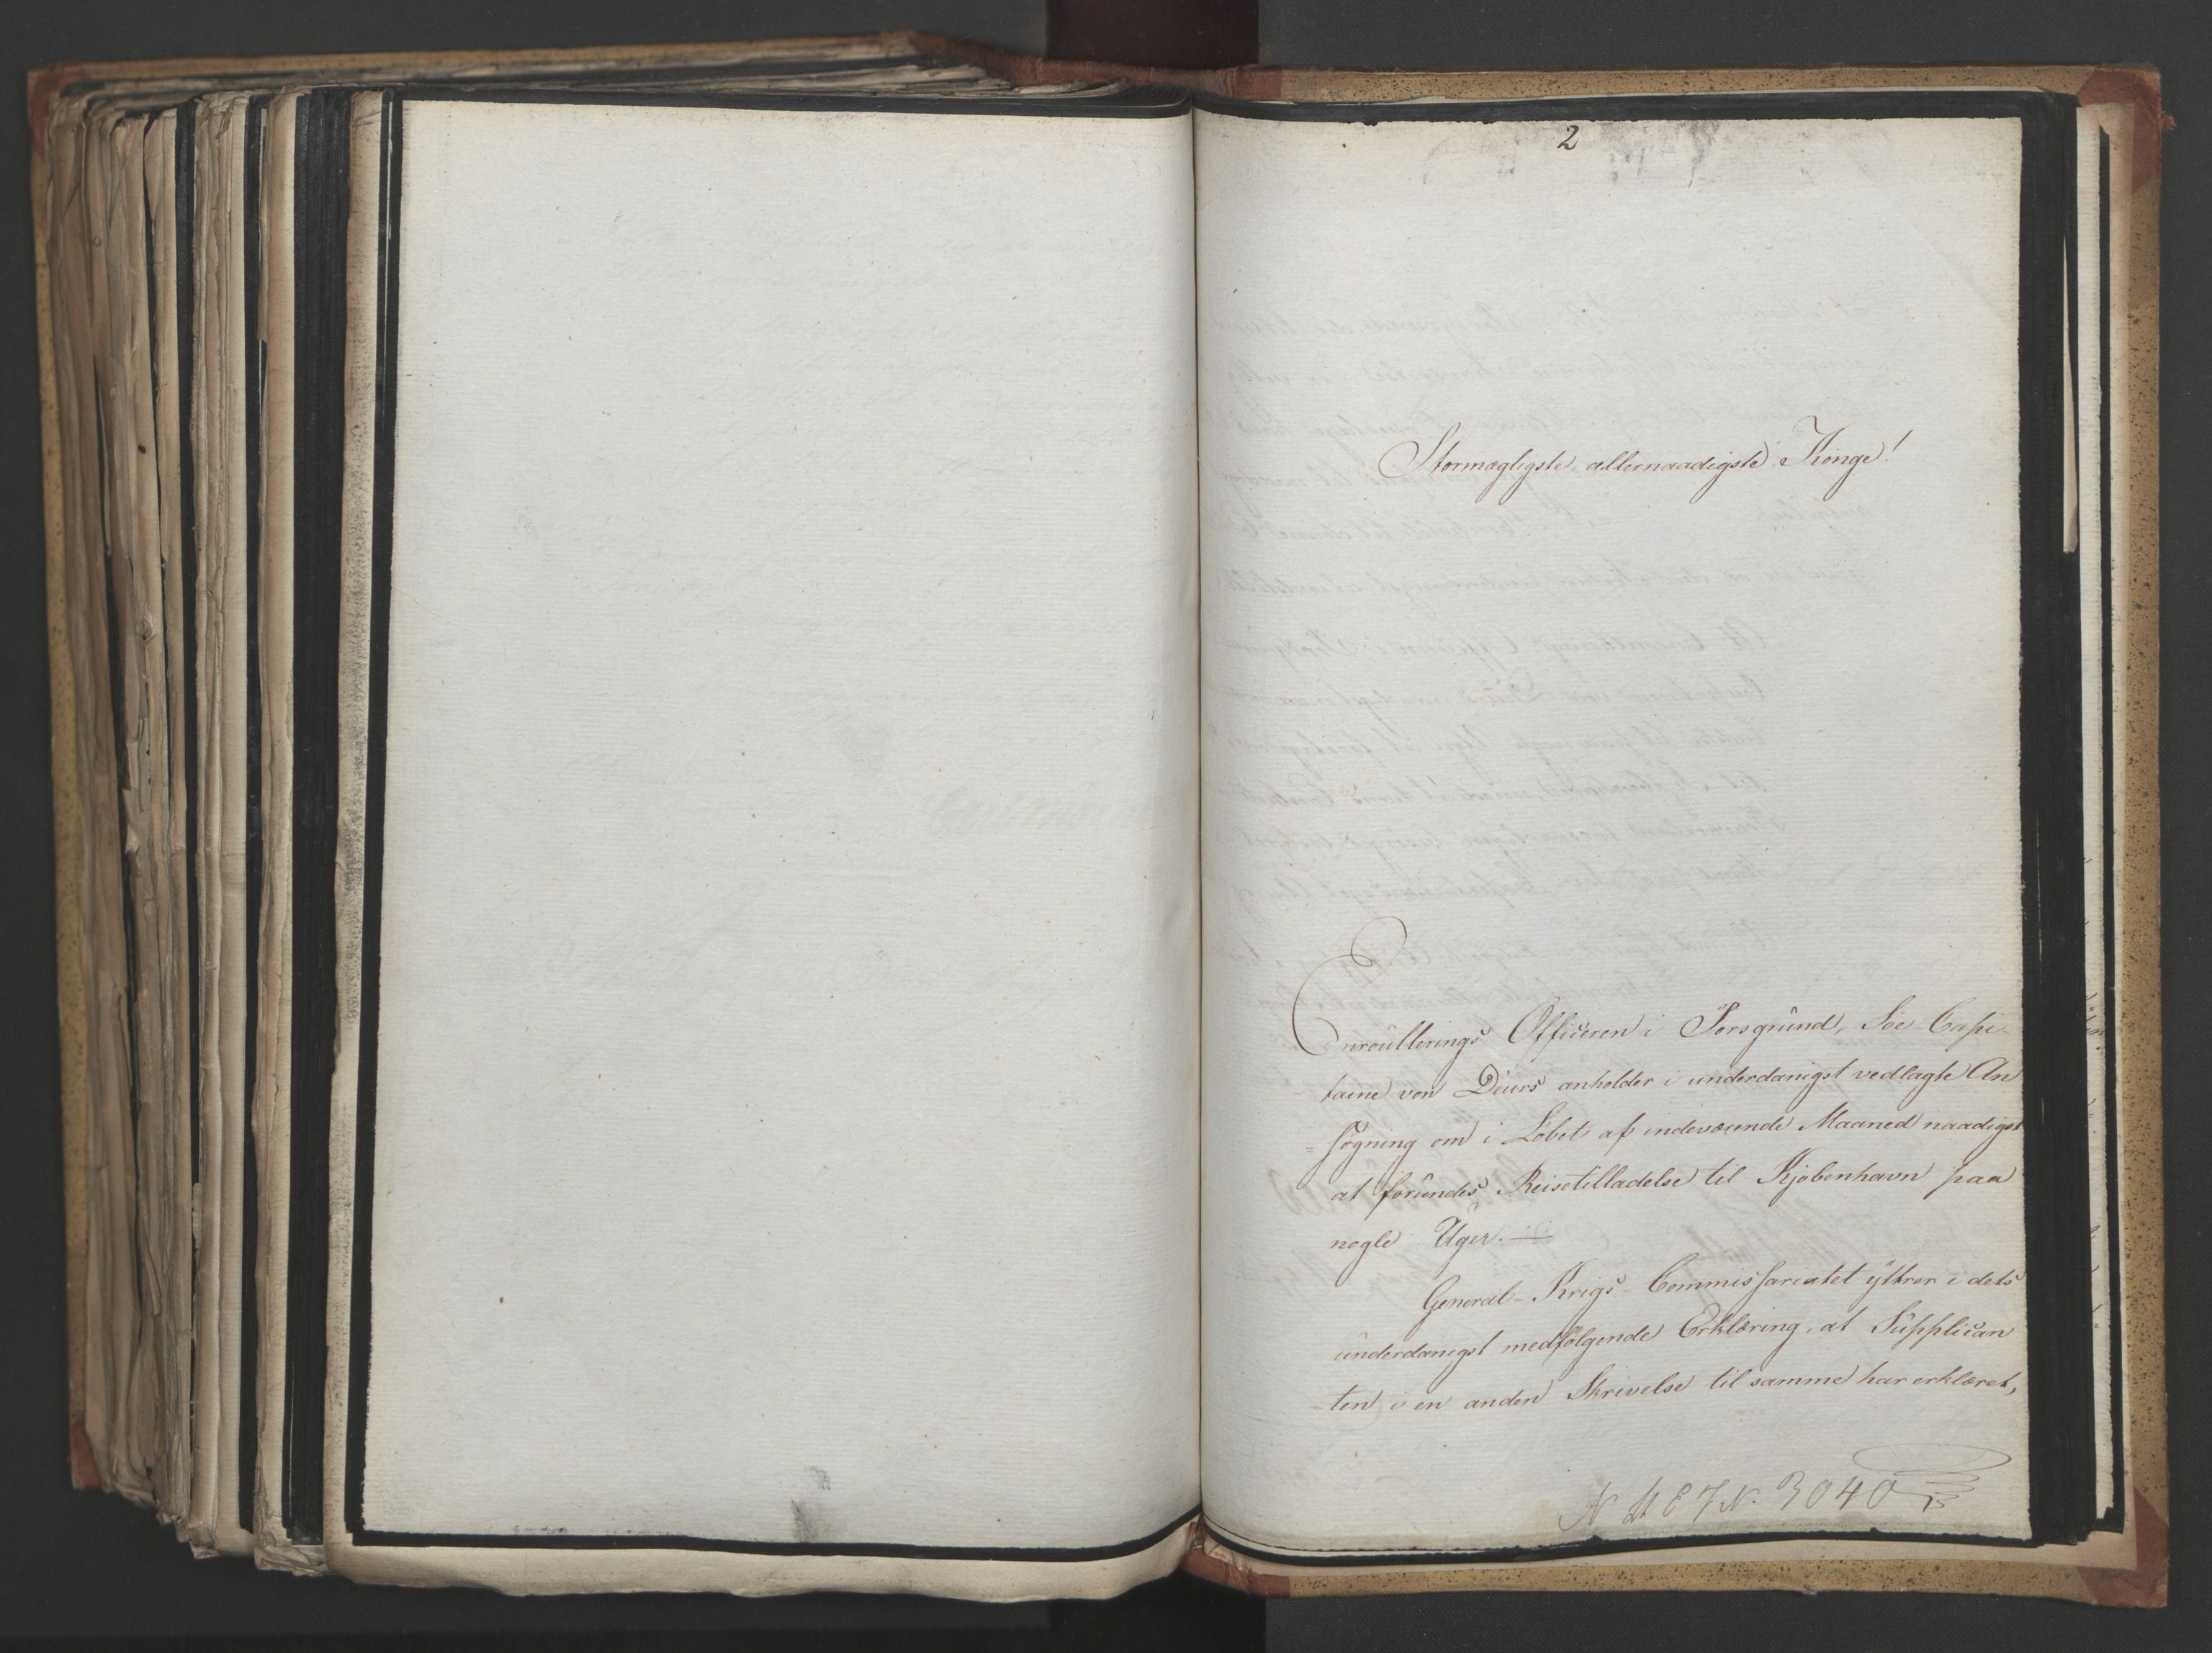 2
Stormægtigste, allernaadigste Konge!
Enroullerings Officeren i Porsgrund, Søe-Capi-
taine von Deurs anholder i underdanigst vedlagte An
=søgning om i Løbet af indeværende Maaned naadigst
at forundes Reisetilladelse til Kjøbenhavn paa
nogle Uger. —
General-Krigs-Commissariatet yttrer i dets
underdanigst medfølgende Erklæring, at Supplican
ten i en anden Skrivelse til samme har erklæret,
3040